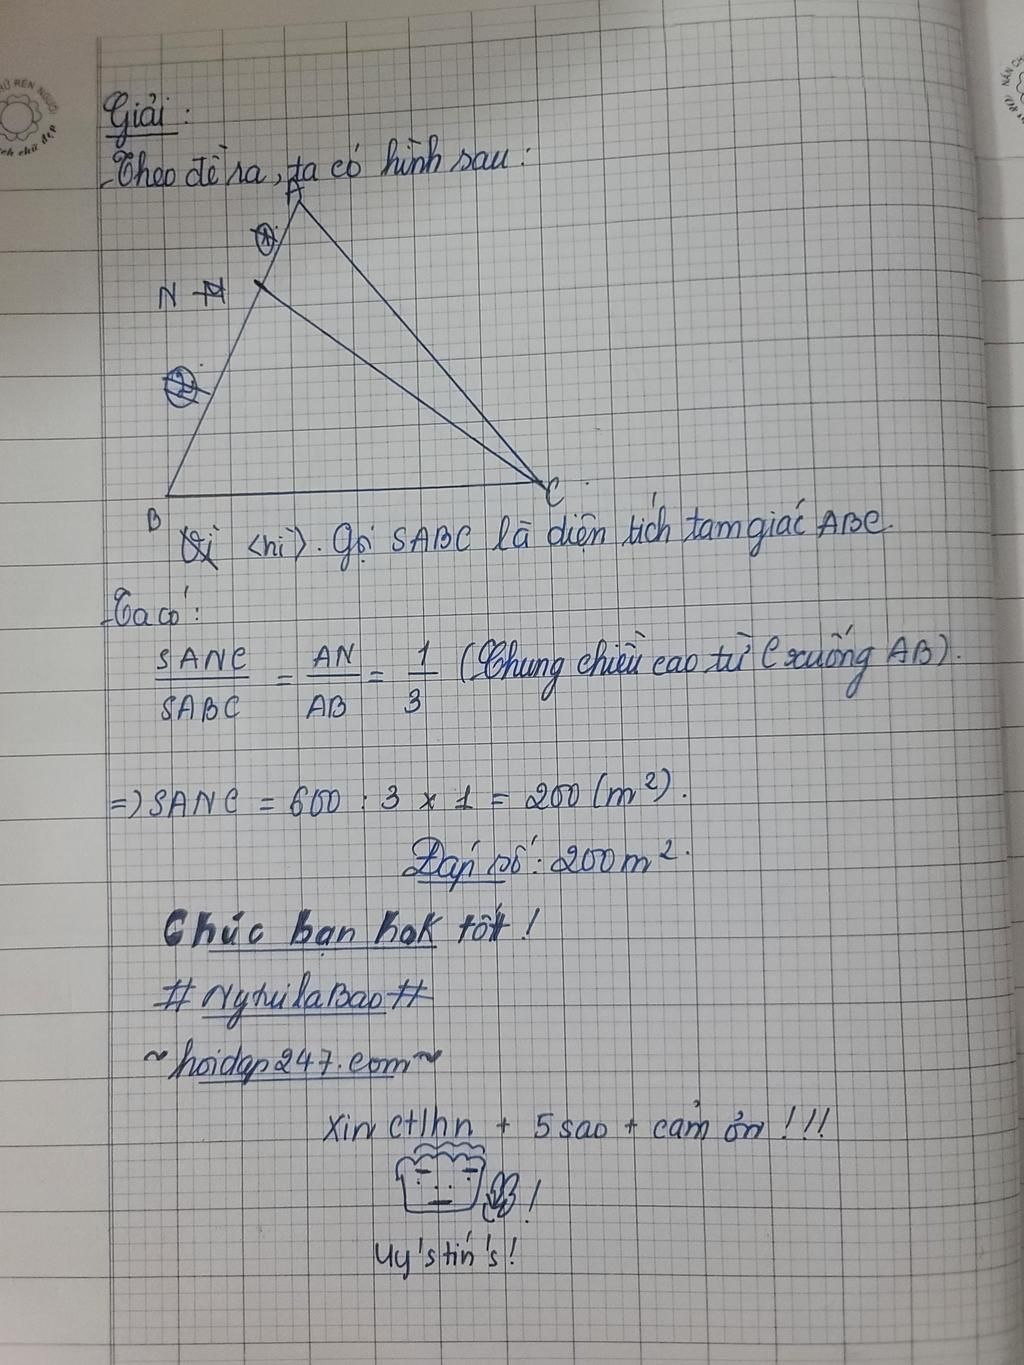 Giải :
- Theo đề ra, ta có hình sau :
A
1
N N
2
B
C
Vì <hì>. Gọi SABC là diện tích tam giác ABC.
- Ta có :
SANC / SABC = AN / AB = 1 / 3 (Chung chiều cao từ C xuống AB).
=> SANC = 600 : 3 x 1 = 200 (m²).
Đáp số : 200 m².
Chúc bạn hok tốt !
# NgtuilaBao #
~ hoidap247.com ~
Xin ctlhn + 5 sao + cảm ơn !!!
!
Uy's tín's !